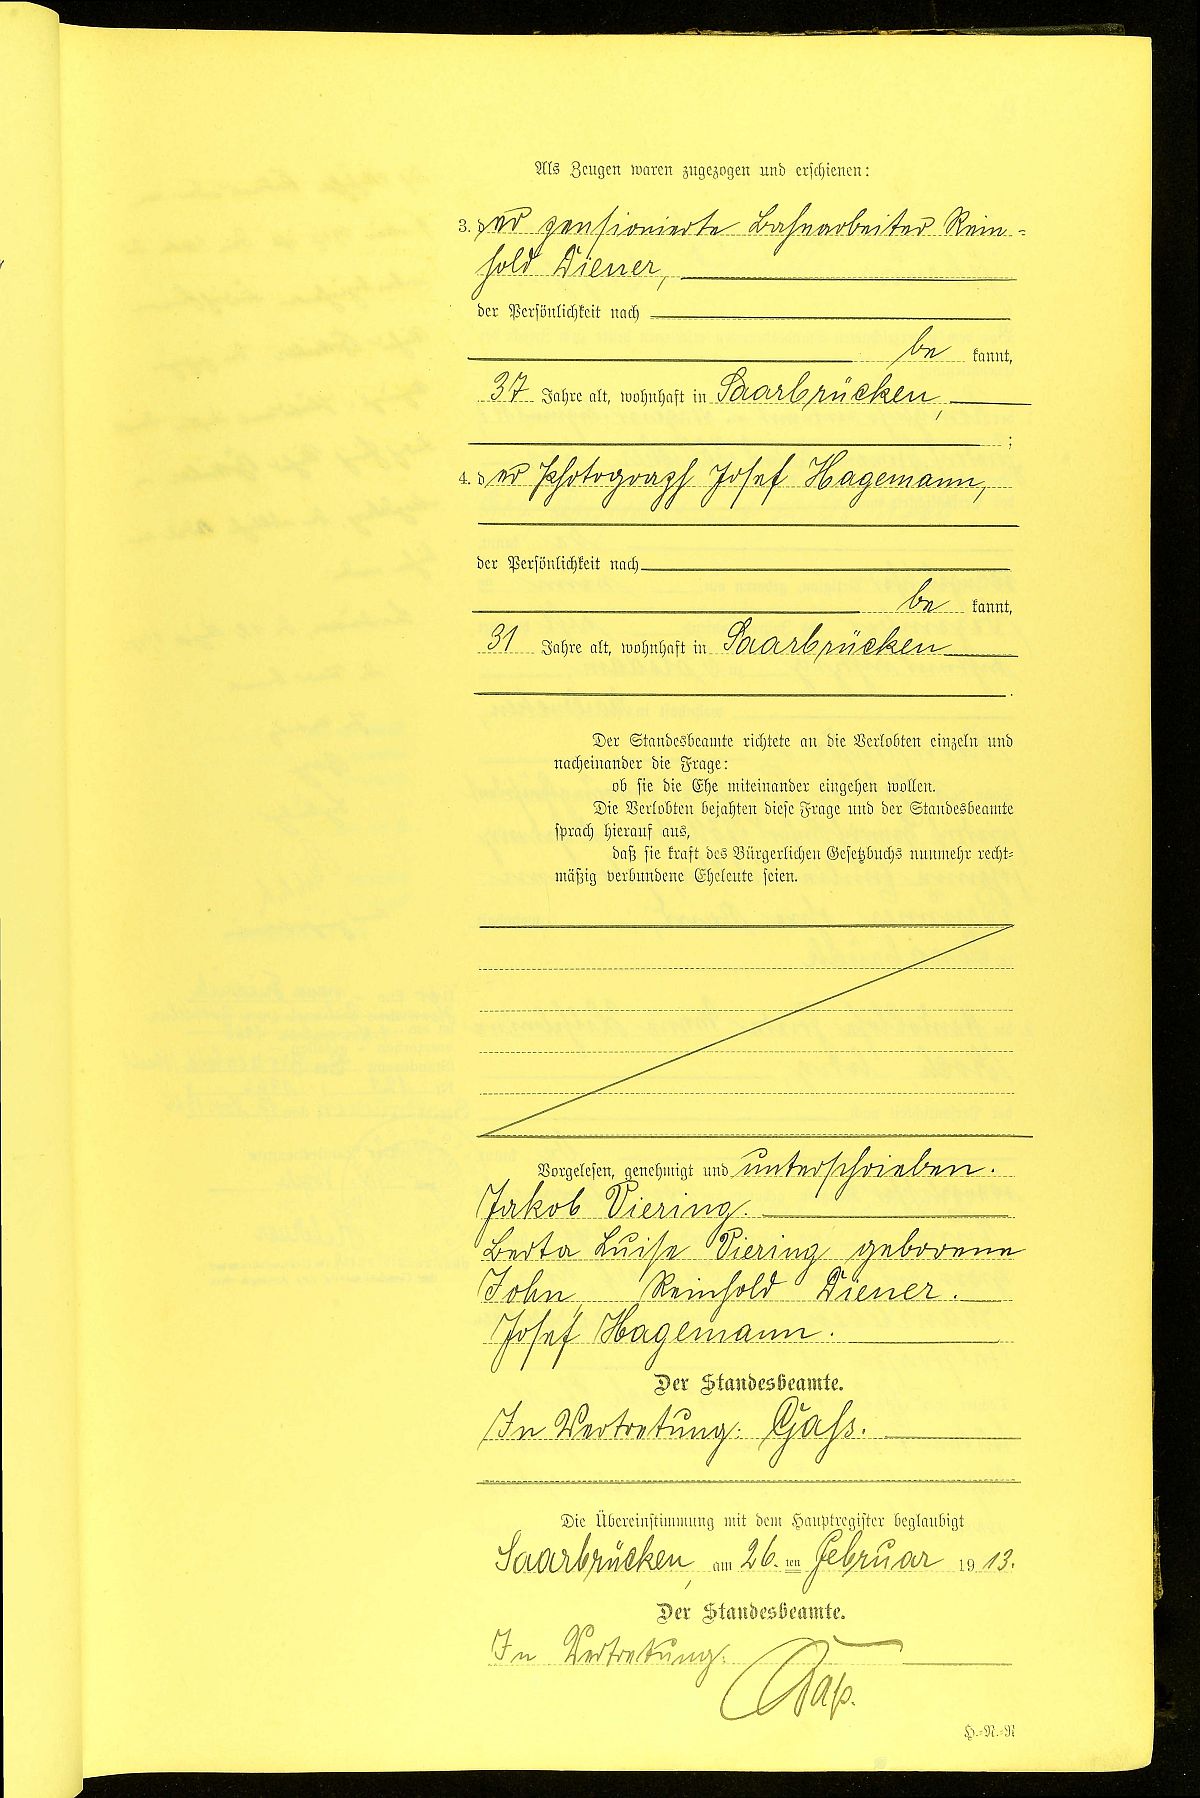 Als Zeugen waren zugezogen und erschienen:
3. der pensionierte Bahnarbeiter Rein-
hold Diener,
der Persönlichkeit nach
be kannt,
37 Jahre alt, wohnhaft in Saarbrücken,
;
4. der Photograph Josef Hagemann,
der Persönlichkeit nach
be kannt,
31 Jahre alt, wohnhaft in Saarbrücken
.
Der Standesbeamte richtete an die Verlobten einzeln und
nacheinander die Frage:
ob sie die Ehe miteinander eingehen wollen.
Die Verlobten bejahten diese Frage und der Standesbeamte
sprach hierauf aus,
daß sie kraft des Bürgerlichen Gesetzbuchs nunmehr recht-
mäßig verbundene Eheleute seien.
Vorgelesen, genehmigt und unterschrieben.
Jakob Viering.
Berta Luise Viering geborene
John, Reinhold Diener.
Josef Hagemann.
Der Standesbeamte.
In Vertretung: Gass.
Die Übereinstimmung mit dem Hauptregister beglaubigt
Saarbrücken, am 26. ten Februar 1913.
Der Standesbeamte.
In Vertretung:
Gass.
H.-R.-R